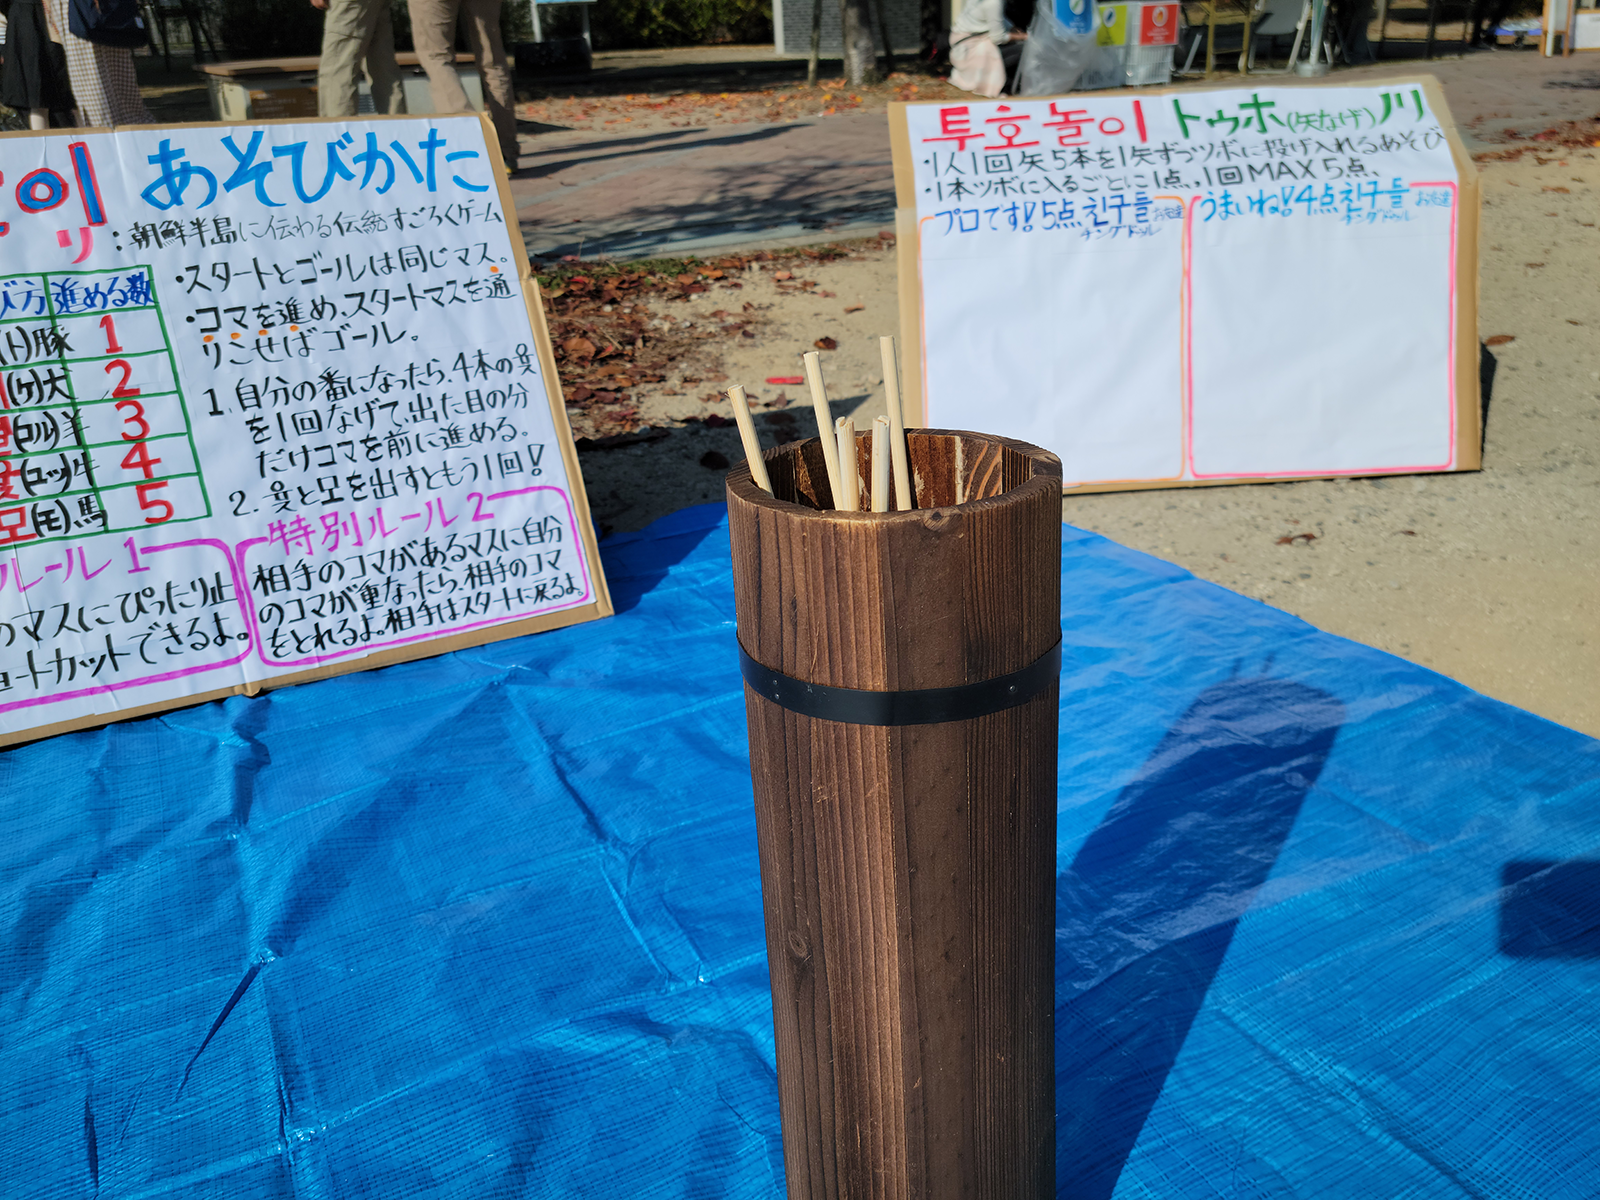 리 あそびかた
リ:朝鮮半島に伝わる伝統すごろくゲーム
・スタートとゴールは同じマス。
・コマを進め、スタートマスを通
りこせばゴール。
1.自分の番になったら、4本の윷
を1回なげて、出た目の分
だけコマを前に進める。
2.윷と모を出すともう1回!
び方 進める数
(ト)豚 1
(ケ)犬 2
걸(コル)羊 3
윷(ユッ)牛 4
모(モ)馬 5
ルール1
のマスにぴったり止
ョートカットできるよ。
特別ルール2
相手のコマがあるマスに自分
のコマが重なったら、相手のコマ
をとれるよ。相手はスタートに戻るよ。
투호놀이 トゥホ(矢なげ)ノリ
・1人1回矢5本を1矢ずつツボに投げ入れるあそび
・1本ツボに入るごとに1点、1回MAX5点、
プロです!5点친구들お友達
チングドゥル
うまいね!4点친구들お友達
チングドゥル